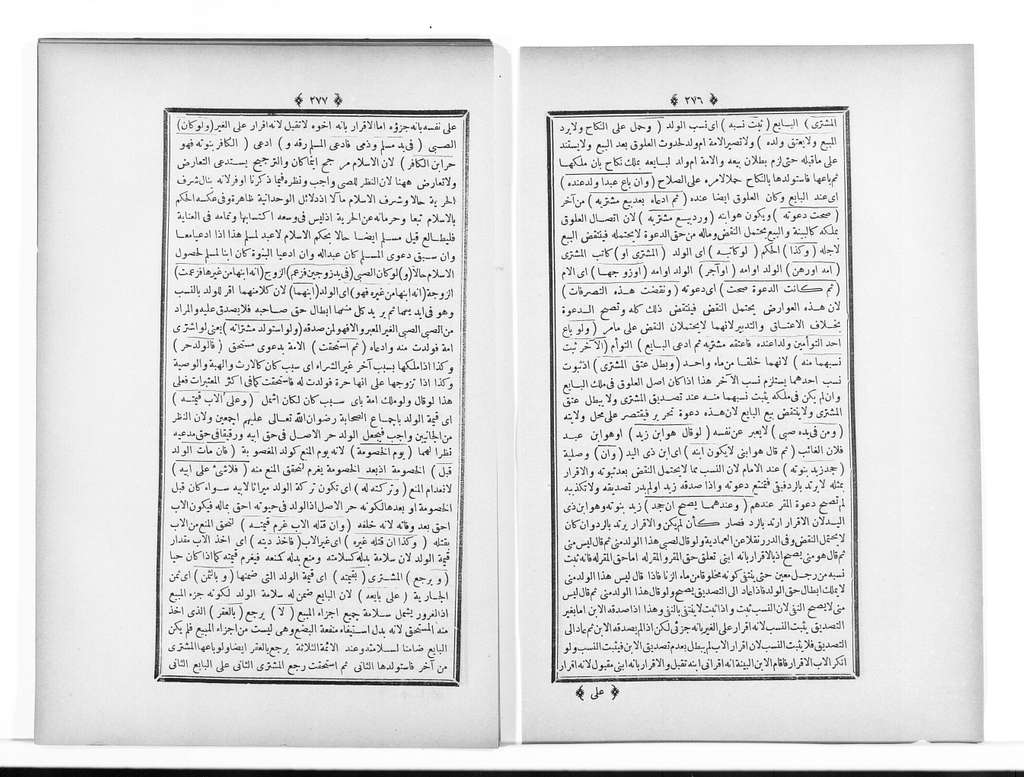 ﴿ ٢٧٦ ﴾
المشترى ) البايع ( ثبت نسبه ) اى نسب الولد ( وحمل على النكاح ولايرد
المبيع ولايعتق ولده ) ولاتصير الامة ام ولد لحدوث العلوق بعد البيع ولايستند
على ماقبله حتى لزم بطلان بيعه والامة ام ولد لبايعه بملك نكاح بان ملكها
ثم باعها فاستولدها بالنكاح حملا لامره على الصلاح ( وان باع عبدا ولد عنده )
اى عند البايع وكان العلوق ايضا عنده ( ثم ادعاه بعد بيع مشتريه ) من آخر
( صحت دعوته ) ويكون هو ابنه ( ورد بيع مشتريه ) لان اتصال العلوق
بملكه كالبينة والبيع يحتمل النقض وماله من حق الدعوة لايحتمله فينتقض البيع
لاجله ( وكذا ) الحكم ( لو كاتبه ) اى الولد ( المشترى او ) كاتب المشترى
( امه اورهن ) الولد اوامه ( اوآجر ) الولد اوامه ( اوزوجها ) اى الام
( ثم كانت الدعوة صحت ) اى دعوته ( ونقضت هذه التصرفات )
لان هذه العوارض يحتمل النقض فينتقض ذلك كله وتصح الدعوة
بخلاف الاعتاق والتدبير لانهما لايحتملان النقض على مامر ( ولو باع
احد التوأمين ولدا عنده فاعتقه مشتريه ثم ادعى البايع ) التوأم ( الآخر ثبت
نسبهما منه ) لانهما خلقا من ماء واحد ( وبطل عتق المشترى ) اذ ثبوت
نسب احدهما يستلزم نسب الآخر هذا اذا كان اصل العلوق فى ملك البايع
وان لم يكن فى ملكه يثبت نسبهما منه عند تصديق المشترى ولايبطل عتق
المشترى ولاينتقض بيع البايع لان هذه دعوة تحرير فيقتصر على محل ولايته
( ومن فى يده صبى ) لايعبر عن نفسه ( لو قال هو ابن زيد ) او هو ابن عبد
فلان الغائب ( ثم قال هو ابنى لايكون ابنه ) اى ابن ذى اليد ( وان ) وصلية
( جحد زيد بنوته ) عند الامام لان النسب مما لايحتمل النقض بعد ثبوته والاقرار
بمثله لايرتد بالرد فبقى فتمتنع دعوته واذا صدقه زيد او لم يدر تصديقه ولا تكذيبه
لم تصح دعوة المقر عندهم ( وعندهما يصح ان جحد ) زيد بنوته وهو ابن ذى
اليد لان الاقرار ارتد بالرد فصار كأن لم يكن والاقرار يرتد بالرد وان كان
لايحتمل النقض وفى الدرر نقلا عن العمادية ولو قال لصبى هذا الولد منى ثم قال ليس منى
ثم قال هو منى يصح اذ بالاقرار بانه ابنى تعلق حق المقر والمقر له اما حق المقر له فانه ثبت
نسبه من رجل معين حتى ينتفى كونه مخلوقا من ماء الزنا فاذا قال ليس هذا الولد منى
لايملك ابطال حق الولد فاذا عاد الى التصديق يصح ولو قال هذا الولد منى ثم قال ليس
منى لايصح النفى لان النسب ثبت واذا ثبت لاينتفى بالنفى وهذا اذا صدقه الابن اما بغير
التصديق يثبت النسب لانه اقرار على الغير بانه جزئى لكن اذا لم يصدقه الابن ثم عاد الى
التصديق فلا يثبت النسب لان اقرار الاب لم يبطل بعدم تصديق الابن فيثبت النسب ولو
انكر الاب الاقرار فاقام الابن البينة انه اقر انى ابنه تقبل والاقرار بانه ابنى مقبول لانه اقرار
﴿ على ﴾
﴿ ٢٧٧ ﴾
على نفسه بانه جزؤه اما الاقرار بانه اخوه لاتقبل لانه اقرار على الغير ( ولو كان )
الصبى ( فى يد مسلم وذمى فادعى المسلم رقه و ) ادعى ( الكافر بنوته فهو
حر ابن الكافر ) لان الاسلام مرجح اينما كان والترجيح يستدعى التعارض
ولاتعارض ههنا لان النظر للصبى واجب ونظره فيما ذكرنا اوفر لانه ينال شرف
الحرية حالا وشرف الاسلام مآلا اذ دلائل الوحدانية ظاهرة وفى عكسه الحكم
بالاسلام تبعا وحرمانه عن الحرية اذ ليس فى وسعه اكتسابها وتمامه فى العناية
فليطالع قيل مسلم ايضا حالا بحكم الاسلام لاعبد لمسلم هذا اذا ادعيا معا
وان سبق دعوى المسلم كان عبدا له وان ادعيا البنوة كان ابنا لمسلم لحصول
الاسلام حالا ( و ) لو كان الصبى ( فى يد زوجين فزعم ) الزوج ( انه ابنها من غيرها فزعمت )
الزوجة ( انه ابنها من غيره فهو ) اى الولد ( ابنهما ) لان كلا منهما اقر للولد بالنسب
وهو فى ايديهما ثم يريد كل منهما ابطال حق صاحبه فلا يصدق عليه والمراد
من الصبى الصبى الغير المعبر والا فهو لمن صدقه ( ولو استولد مشتراته ) يعنى لو اشترى
امة فولدت منه وادعاه ( ثم استحقت ) الامة بدعوى مستحق ( فالولد حر )
وكذا اذا ملكها بسبب آخر غير الشراء اى سبب كان كالارث والهبة والوصية
وكذا اذا تزوجها على انها حرة فولدت له فاستحقت كما فى اكثر المعتبرات فعلى
هذا لو قال ولو ملك امة باى سبب كان لكان اشمل ( وعلى الاب قيمته )
اى قيمة الولد باجماع الصحابة رضوان الله تعالى عليهم اجمعين ولان النظر
من الجانبين واجب فيجعل الولد حر الاصل فى حق ابيه ورقيقا فى حق مدعيه
نظرا لهما ( يوم الخصومة ) لانه يوم المنع كولد المغصوبة ( فان مات الولد
قبل ) الخصومة اذ بعد الخصومة يغرم لتحقق المنع منه ( فلا شئ على ابيه )
لانعدام المنع ( وتركته له ) اى تكون تركة الولد ميراثا لابيه سواء كان قبل
الخصومة او بعدها لكونه حر الاصل اذ الولد فى حيوته احق بماله فيكون الاب
احق بعد وفاته لانه خلفه ( وان قتله الاب غرم قيمته ) لتحقق المنع من الاب
بقتله ( وكذا ان قتله غيره ) اى غير الاب ( فاخذ ديته ) اى اخذ الاب مقدار
قيمة الولد لان سلامة بدله كسلامته ومنع بدله كمنعه فيغرم قيمته كما اذا كان حيا
( ويرجع ) المشترى ( بقيمته ) اى قيمة الولد التى ضمنها ( وبالثمن ) اى ثمن
الجارية ( على بايعه ) لان البايع ضمن له سلامة الولد لكونه جزء المبيع
اذ الغرور يشمل سلامة جميع اجزاء المبيع ( لا ) يرجع ( بالعقر ) الذى اخذ
منه المستحق لانه بدل استيفاء منفعة البضع وهى ليست من اجزاء المبيع فلم يكن
البايع ضامنا لسلامته وعند الائمة الثلاثة يرجع بالعقر ايضا ولو باعها المشترى
من آخر فاستولدها الثانى ثم استحقت رجع المشترى الثانى على البايع الثانى